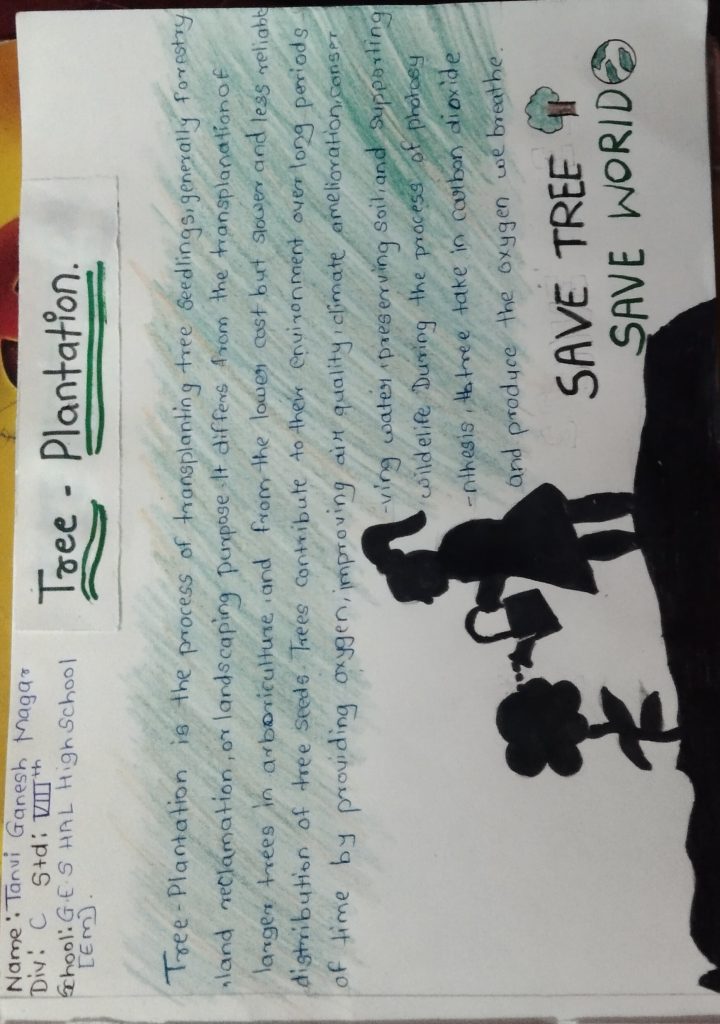 Name: Tanvi Ganesh Magar
Div: C Std: VIIIth
School: G.E.S HAL High School
[EM].
Tree - Plantation.
Tree-Plantation is the process of transplanting tree seedlings, generally forestry
, land reclamation, or landscaping purpose. It differs from the transplanation of
larger trees in arboriculture, and from the lower cost but slower and less reliable
distribution of tree seeds. Trees contribute to their environment over long periods
of time by providing oxygen, improving air quality, climate amelioration, conser
-ving water, preserving soil, and supporting
wildelife During the process of photosy
-nthesis, tree take in carbon dioxide
and produce the oxygen we breathe.
SAVE TREE
SAVE WORID